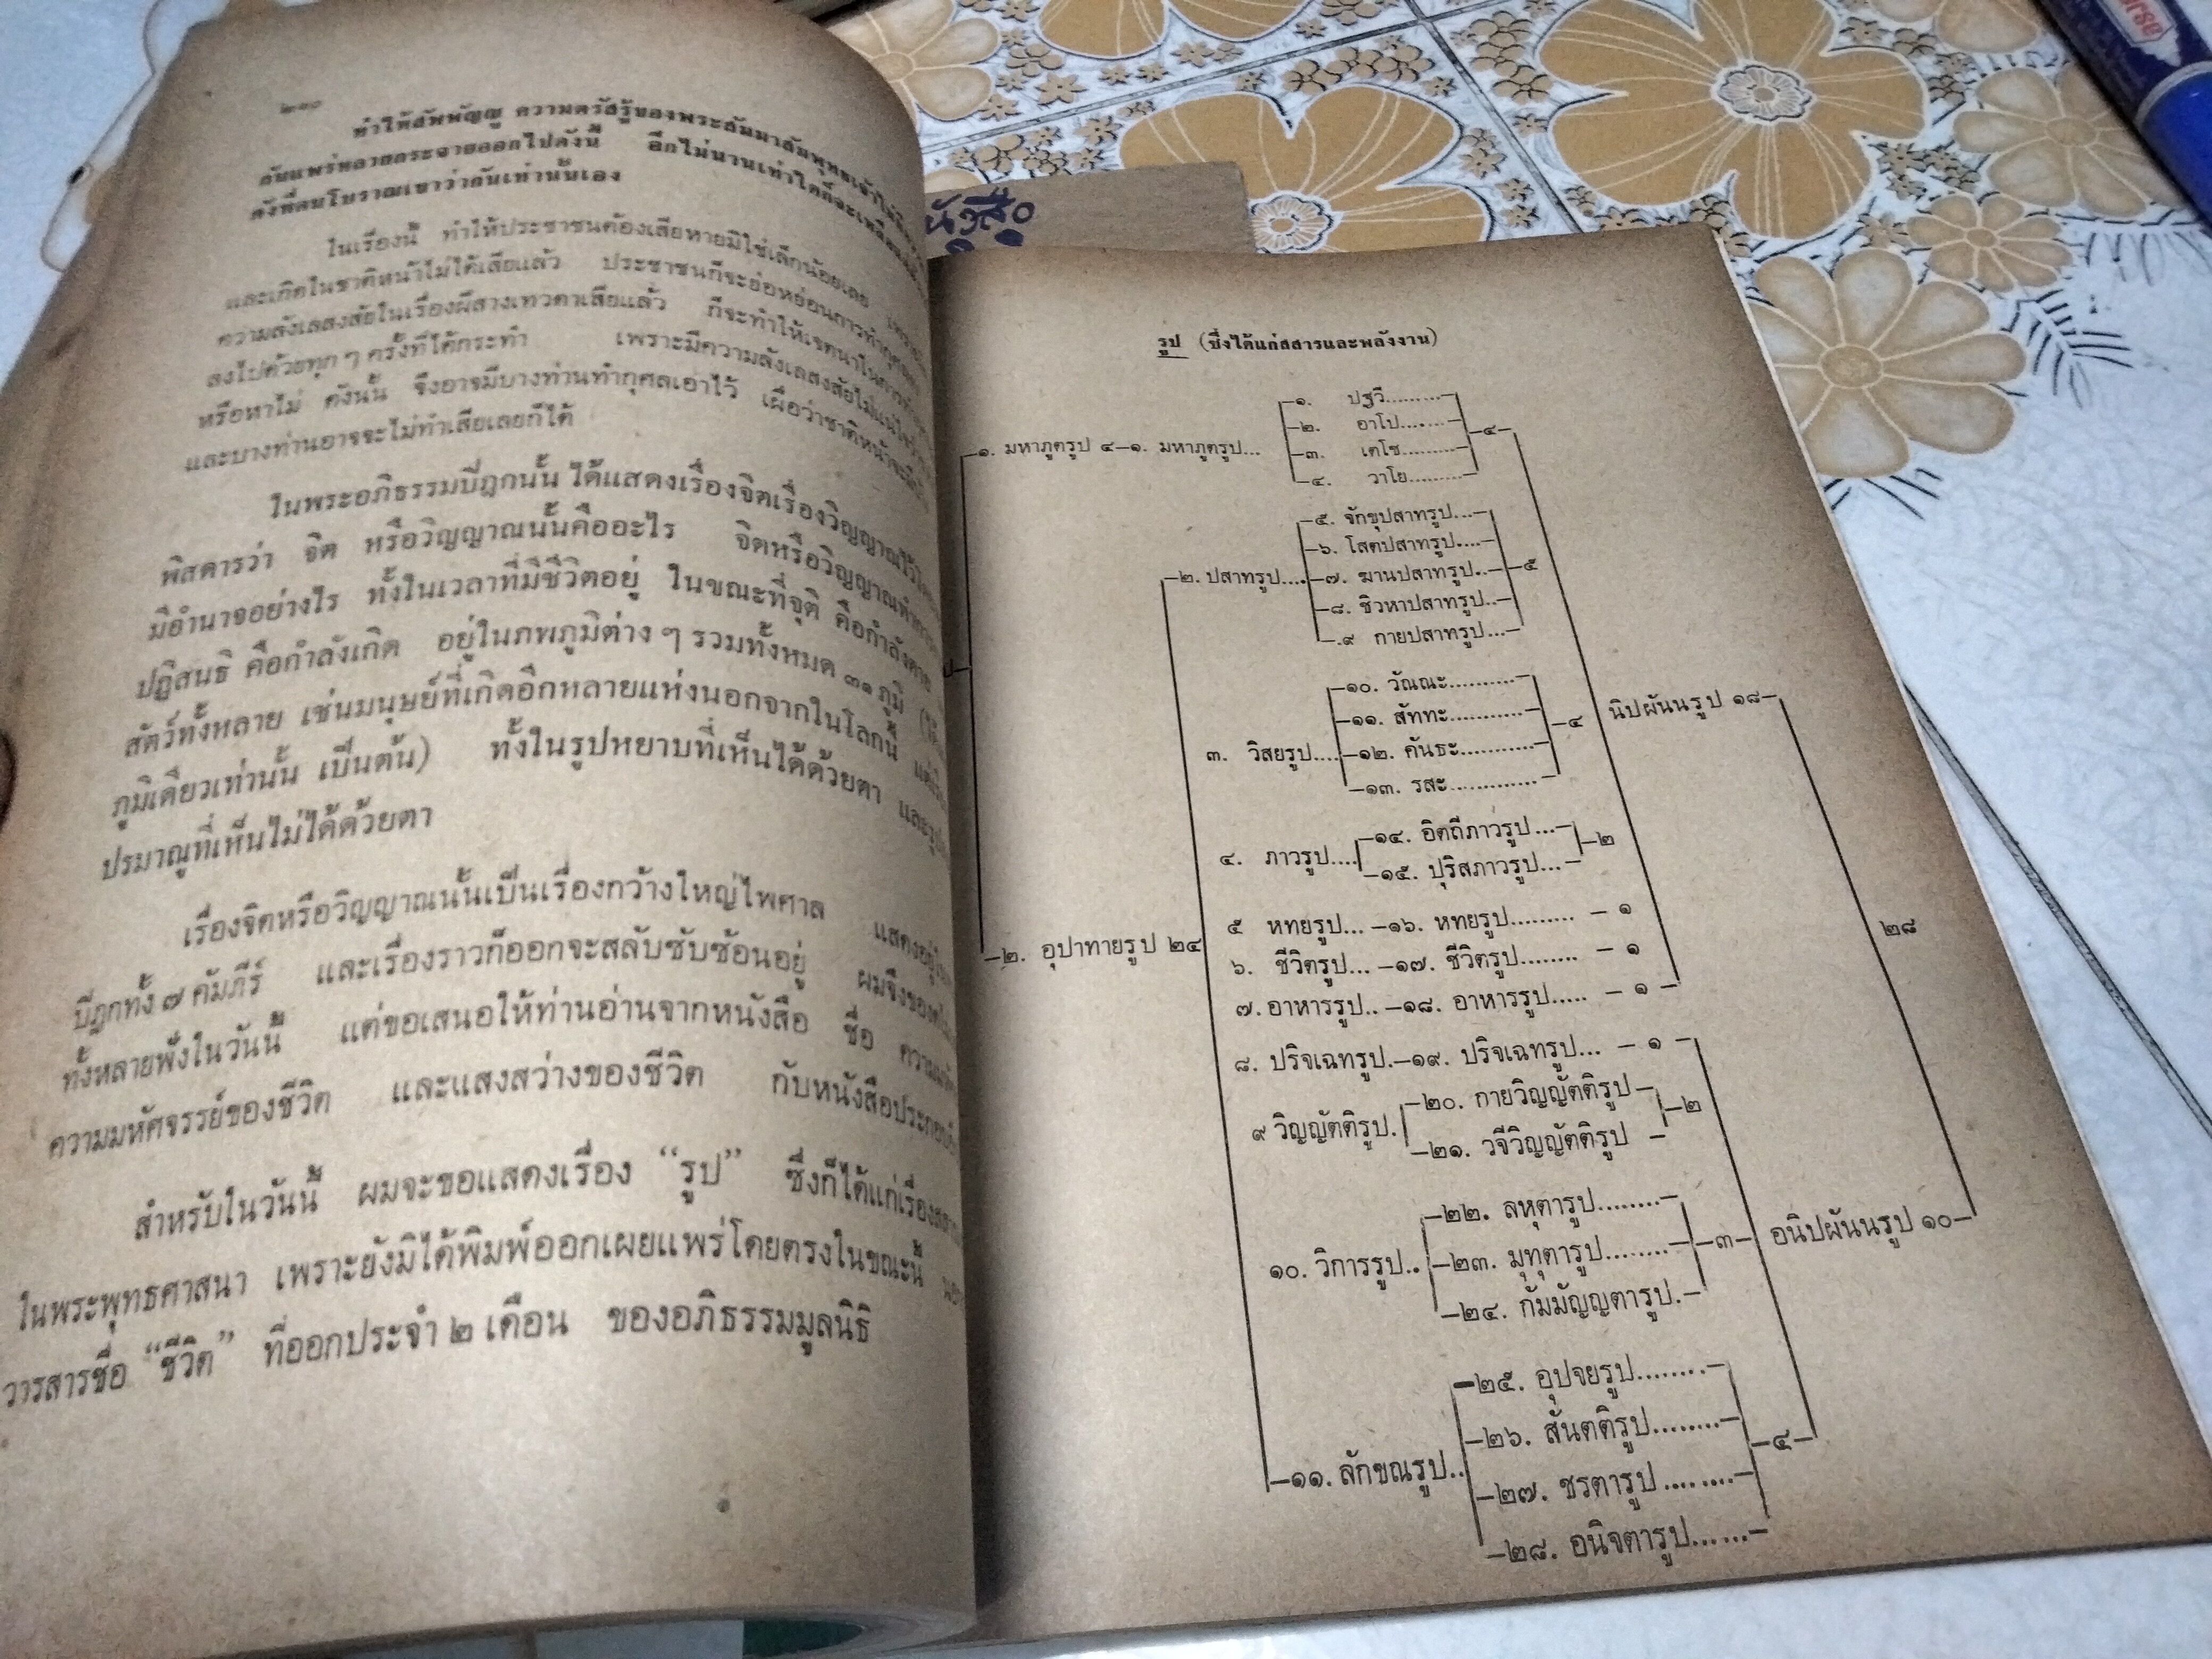 ๒๑๐
ทำให้สัพพัญญู ความตรัสรู้ของพระสัมมาสัมพุทธเจ้า
กันแพร่หลายกระจายออกไปดังนี้ อีกไม่นานเท่าใดก็จะเหลือ
ดังที่คนโบราณเขาว่ากันเท่านั้นเอง
ในเรื่องนี้ ทำให้ประชาชนต้องเสียหายมิใช่เล็กน้อยเลย
และเกิดในชาติหน้าไม่ได้เสียแล้ว ประชาชนก็จะย่อหย่อนการทำกุศล
ความลังเลสงสัยในเรื่องผีสางเทวดาเสียแล้ว ก็จะทำให้เจตนาในการทำ
ลงไปด้วยทุก ๆ ครั้งที่ได้กระทำ เพราะมีความลังเลสงสัยไม่แน่ใจว่า
หรือหาไม่ ดังนั้น จึงอาจมีบางท่านทำกุศลเอาไว้ เผื่อว่าชาติหน้าจะมี
และบางท่านอาจจะไม่ทำเสียเลยก็ได้
ในพระอภิธรรมปิฎกนั้น ได้แสดงเรื่องจิตเรื่องวิญญาณไว้
พิสดารว่า จิต หรือวิญญาณนั้นคืออะไร จิตหรือวิญญาณทำ
มีอำนาจอย่างไร ทั้งในเวลาที่มีชีวิตอยู่ ในขณะที่จุติ คือกำลังตาย
ปฏิสนธิ คือกำลังเกิด อยู่ในภพภูมิต่าง ๆ รวมทั้งหมด ๓๑ ภูมิ
สัตว์ทั้งหลาย เช่นมนุษย์ที่เกิดอีกหลายแห่งนอกจากในโลกนี้
ภูมิเดียวเท่านั้น เป็นต้น) ทั้งในรูปหยาบที่เห็นได้ด้วยตา และรูป
ปรมาณูที่เห็นไม่ได้ด้วยตา
เรื่องจิตหรือวิญญาณนั้นเป็นเรื่องกว้างใหญ่ไพศาล แสดงอยู่
ปิฎกทั้ง ๗ คัมภีร์ และเรื่องราวก็ออกจะสลับซับซ้อนอยู่ ผมจึงขอ
ทั้งหลายฟังในวันนี้ แต่ขอเสนอให้ท่านอ่านจากหนังสือ ชื่อ
ความมหัศจรรย์ของชีวิต และแสงสว่างของชีวิต กับหนังสือประกอบ
สำหรับในวันนี้ ผมจะขอแสดงเรื่อง “รูป” ซึ่งก็ได้แก่เรื่อง
ในพระพุทธศาสนา เพราะยังมิได้พิมพ์ออกเผยแพร่โดยตรงในขณะนี้
วารสารชื่อ “ชีวิต” ที่ออกประจำ ๒ เดือน ของอภิธรรมมูลนิธิ
หนังสือ
รูป (ซึ่งได้แก่สสารและพลังงาน)
๑. ปฐวี.........
๒. อาโป........
๑. มหาภูตรูป ๔—๑. มหาภูตรูป... —๔—
๓. เตโช.........
๔. วาโย.........
๕. จักขุปสาทรูป...
๖. โสตปสาทรูป....
๒. ปสาทรูป.... ๗. ฆานปสาทรูป.. —๕
๘. ชิวหาปสาทรูป..
๙ กายปสาทรูป...
๑๐. วัณณะ..........
๑๑. สัททะ...........
๓. วิสยรูป.... —๔ นิปผันนรูป ๑๘—
๑๒. คันธะ...........
๑๓. รสะ.............
๑๔. อิตถีภาวรูป ...
๔. ภาวรูป.... —๒
๑๕. ปุริสภาวรูป...
๕ หทยรูป... —๑๖. หทยรูป......... — ๑
๒. อุปาทายรูป ๒๔
๖. ชีวิตรูป... —๑๗. ชีวิตรูป........ — ๑
๒๘
๗. อาหารรูป.. —๑๘. อาหารรูป..... — ๑ —
๘. ปริจเฉทรูป.—๑๙. ปริจเฉทรูป... — ๑ —
๒๐. กายวิญญัตติรูป—
๙ วิญญัตติรูป. —๒
๒๑. วจีวิญญัตติรูป —
๒๒. ลหุตารูป........
๑๐. วิการรูป.. ๒๓. มุทุตารูป........ —๓— อนิปผันนรูป ๑๐—
๒๔. กัมมัญญตารูป.—
๒๕. อุปจยรูป........
๒๖. สันตติรูป........
๑๑. ลักขณรูป.. —๔—
๒๗. ชรตารูป ........
๒๘. อนิจตารูป......